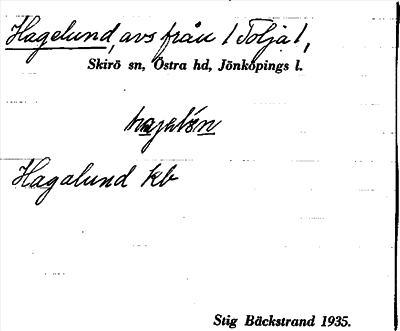 Hagelund, avs från 1 Tolja 1,
Skirö sn, Östra hd, Jönköpings l.
Hagalund kb
Stig Bäckstrand 1935.